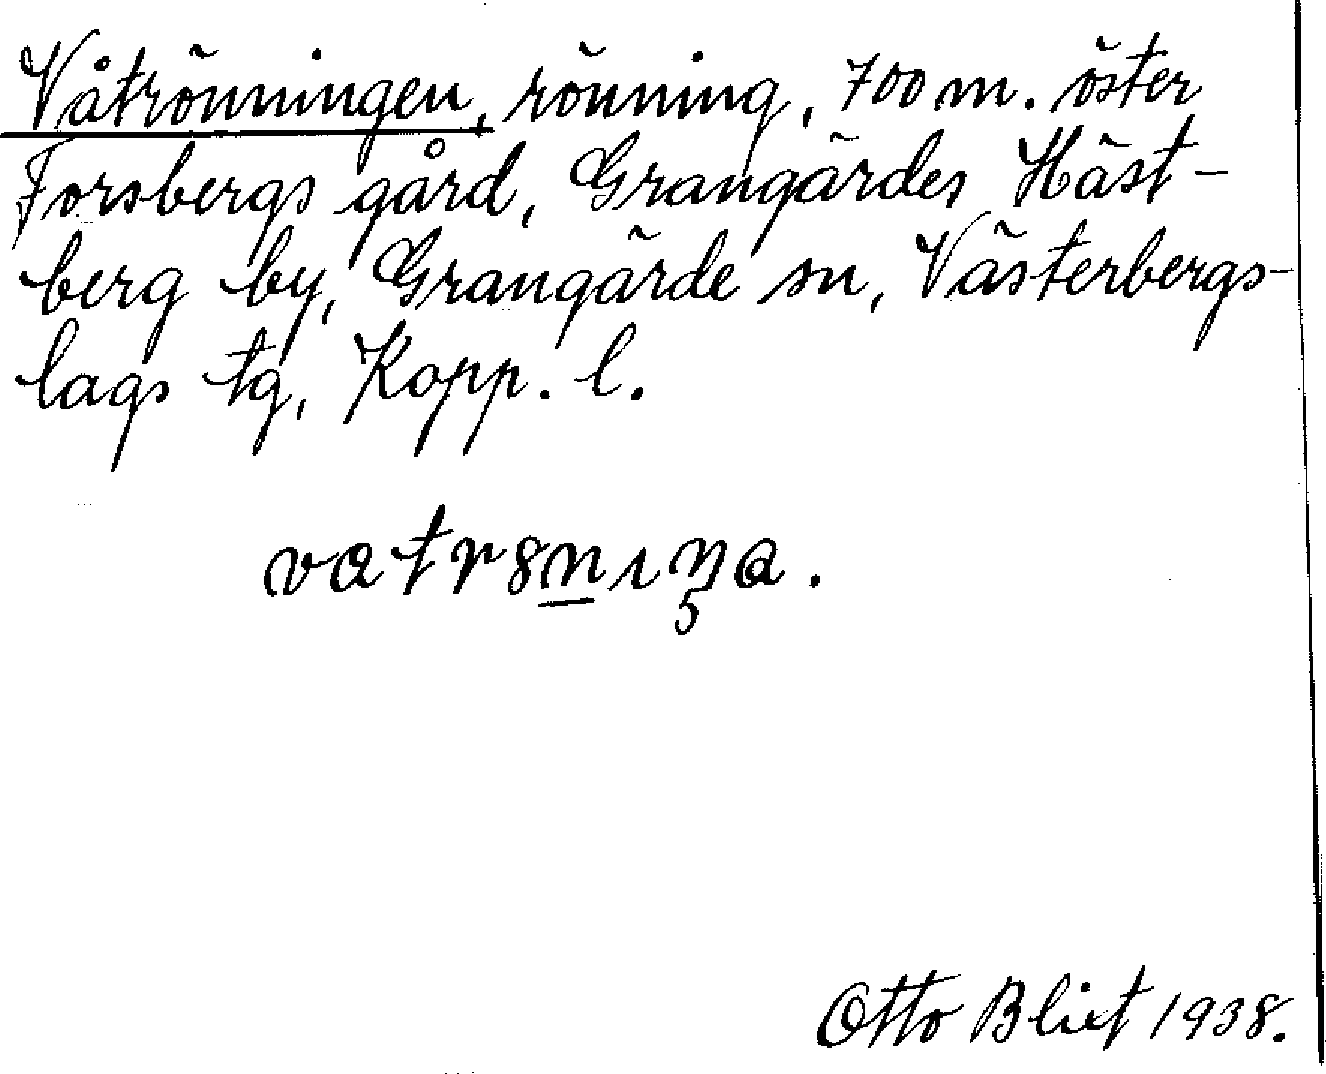 Våtrönningen, rönning, 700 m. öster
Forsbergs gård, Grangärdes Häst-
berg by, Grangärde sn, Västerbergs-
lags tg, Kopp. l.
vatr8nıŋa.
Otto Blixt 1938.